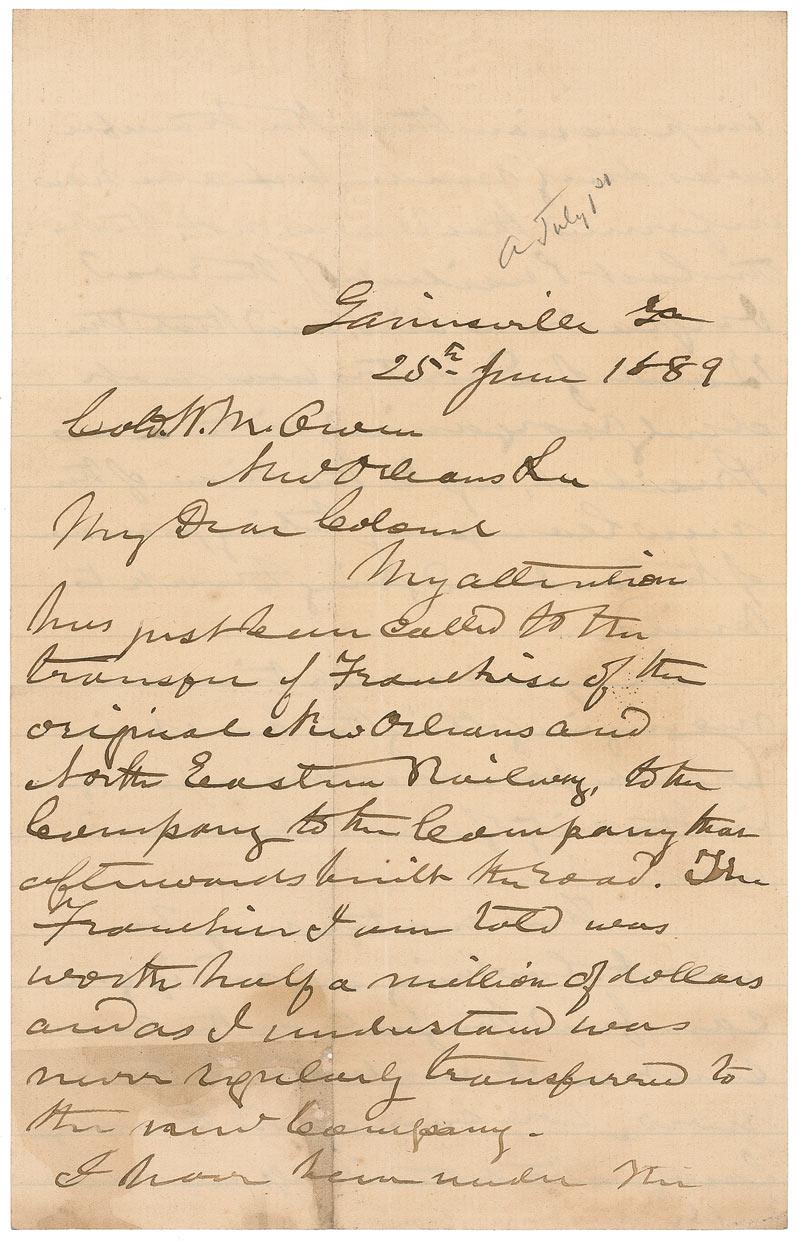 a July 1st
Gainesville Ga
25th June 1889
Col. W. M. Owen
New Orleans La
My Dear Colonel
My attention
has just been called to the
transfer of Franchise of the
original New Orleans and
North Eastern Railway, to the
Company to the Company that
afterwards built the road. The
Franchise I am told was
worth half a million of dollars
and as I understand was
never regularly transferred to
the new Company.
I have been under the